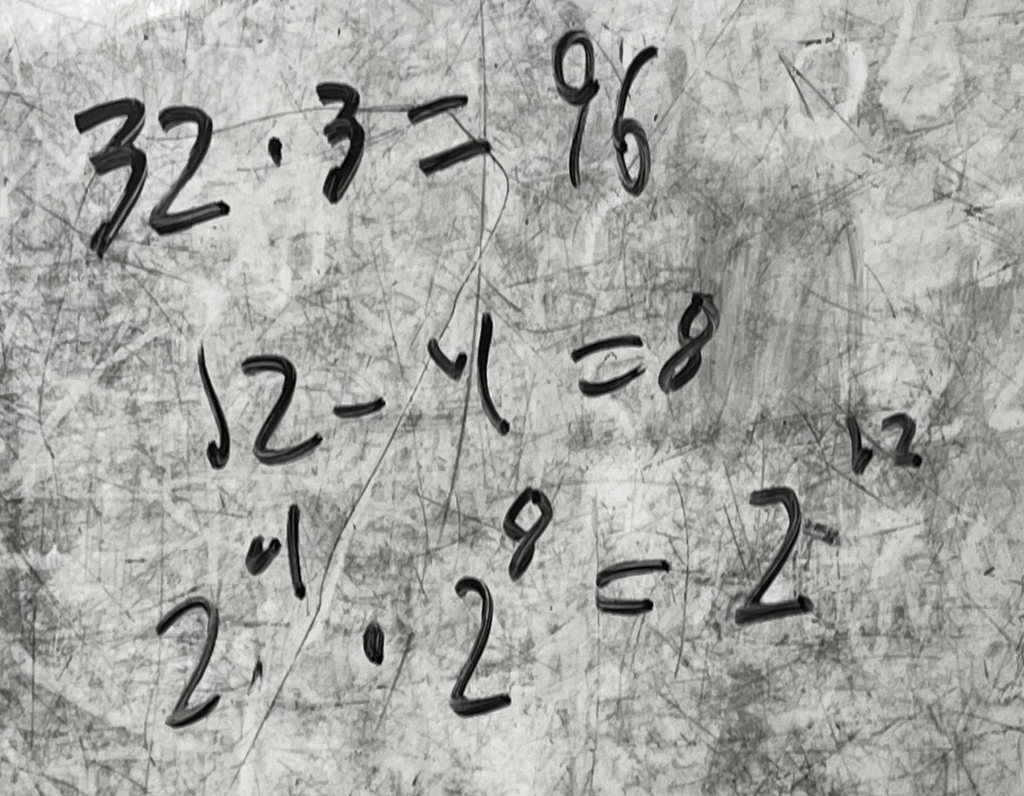 32 · 3 = 96
12 - 4 = 8
2⁴ · 2⁸ = 2¹²